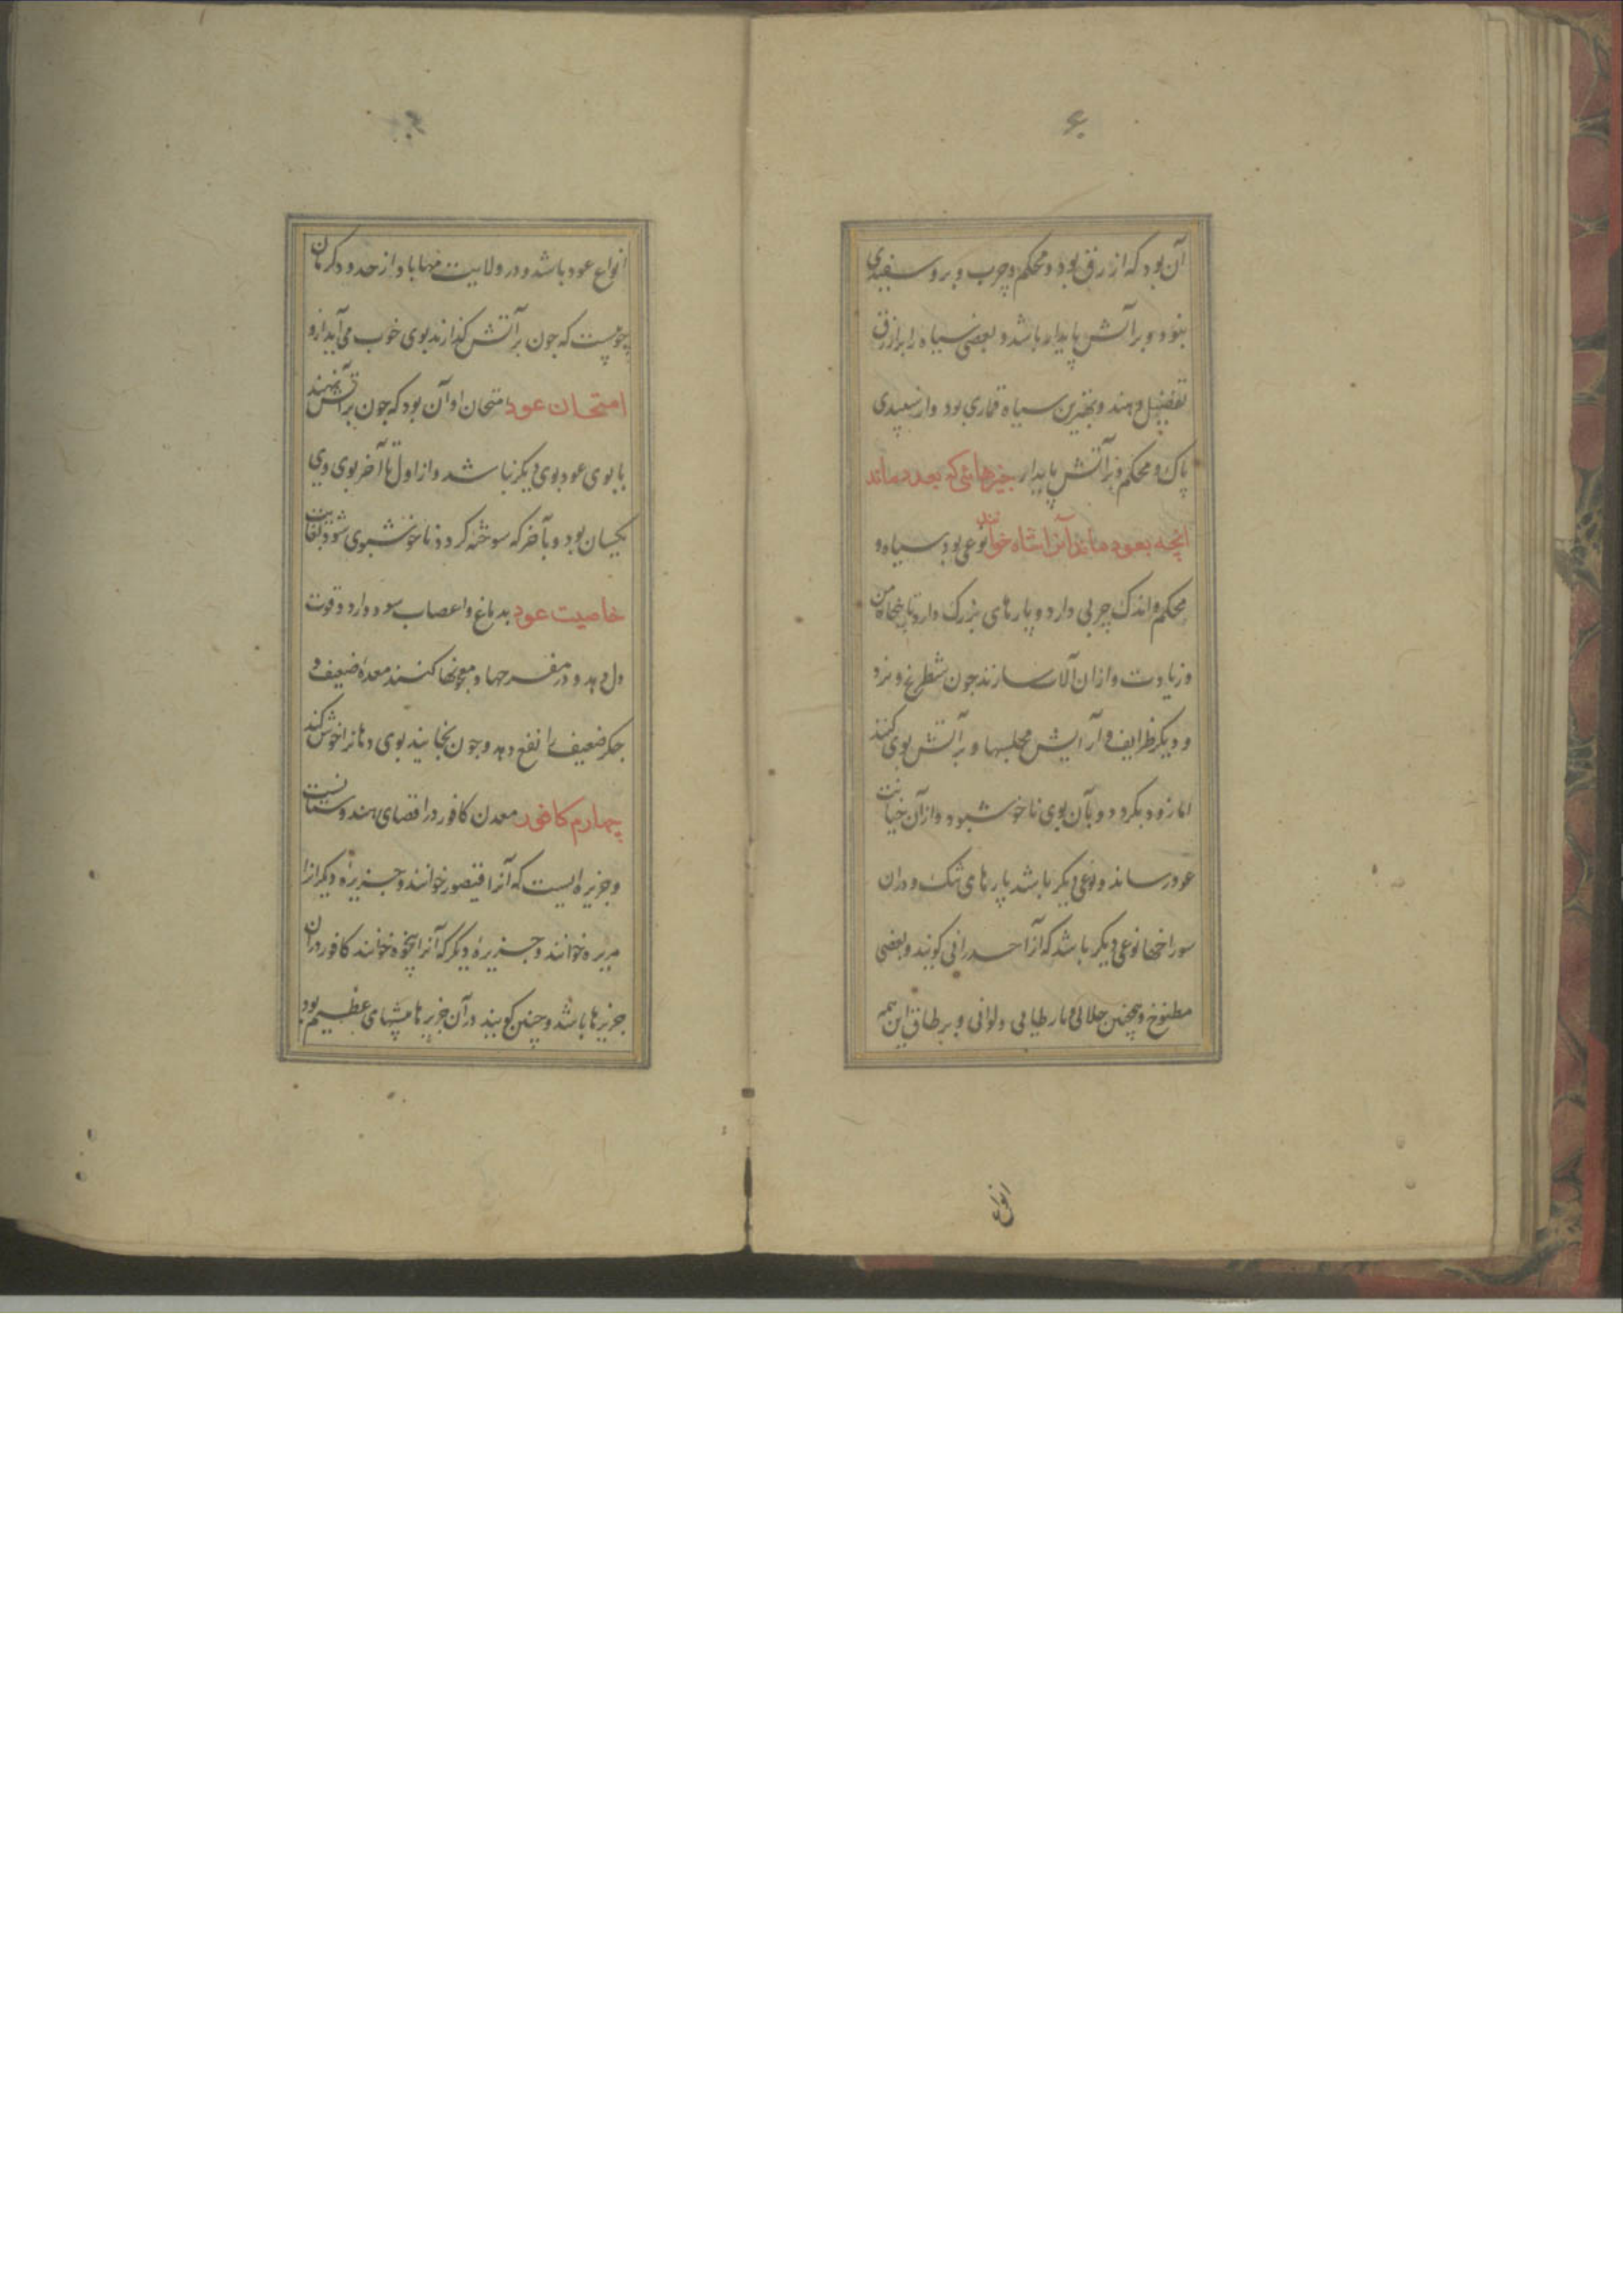 آن بود که ازرق بود و محکم و چرب و برو سفیدی
نبود و بر آتش پایدار باشد و بعضی سیاه را بر ازرق
تفضیل دهند و بهترین سیاه قماری بود و از سپیدی
پاک و محکم و بر آتش پایدار چیزهائی که بعود ماند
انچه بعود ماند آنرا شاه خوانند نوعی بود سیاه و
محکم و اندک چربی دارد و پارهای بزرک دارد تا پنجاه من
و زیادت و ازان آلات سازند جون شطرنج و نرد
و دیکر ظرایف و آرایش مجلسها و بر آتش بوی کنند
اما زود بکردد و بآن بوی ناخوش شود و ازآن خیانت
عود رسانند و نوعی دیکر باشد پارهای تنک و دران
سوراخها نوعی دیکر باشد که آنرا کویند و بعضی
مطبوخ و همچنین جلالی و ولوانی و این همه
انواع
انواع عود باشد و در ولایت مهاباد از حدود کرمان
چوبیست که جون بر آتش کذارند بوی خوب می آید ازو
امتحان عود امتحان او آن بود که جون بر آتش نهند
با بوی عود بوی دیکر نباشد و از اول تا آخر بوی وی
یکسان بود و بآخر که سوخته کردد ناخوشبوی شود بغایت
خاصیت عود بدماغ و اعصاب سود دارد و قوت
دل دهد و در مفرحها و معجونها کنند معدهٔ ضعیف و
جکر ضعیف را نفع دهد و جون بخایند بوی دهانرا خوش کند
چهارم کافور معدن کافور در اقصای هندوستانست
و جزیره ایست که آنرا قیصور خوانند و جزیرهٔ دیکر انرا
مریره خوانند و جزیرهٔ دیکر که آنرا خوانند کافور دران
جزیرها باشد و چنین کویند درآن جزیرها بیشهای عظیم بود